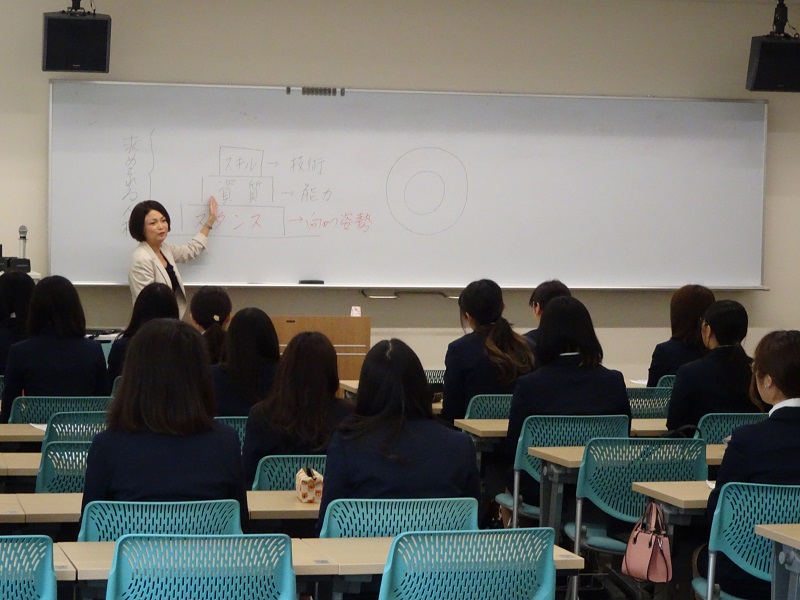 スキル → 技術
資質 → 能力
スタンス → 向かう姿勢
求める人